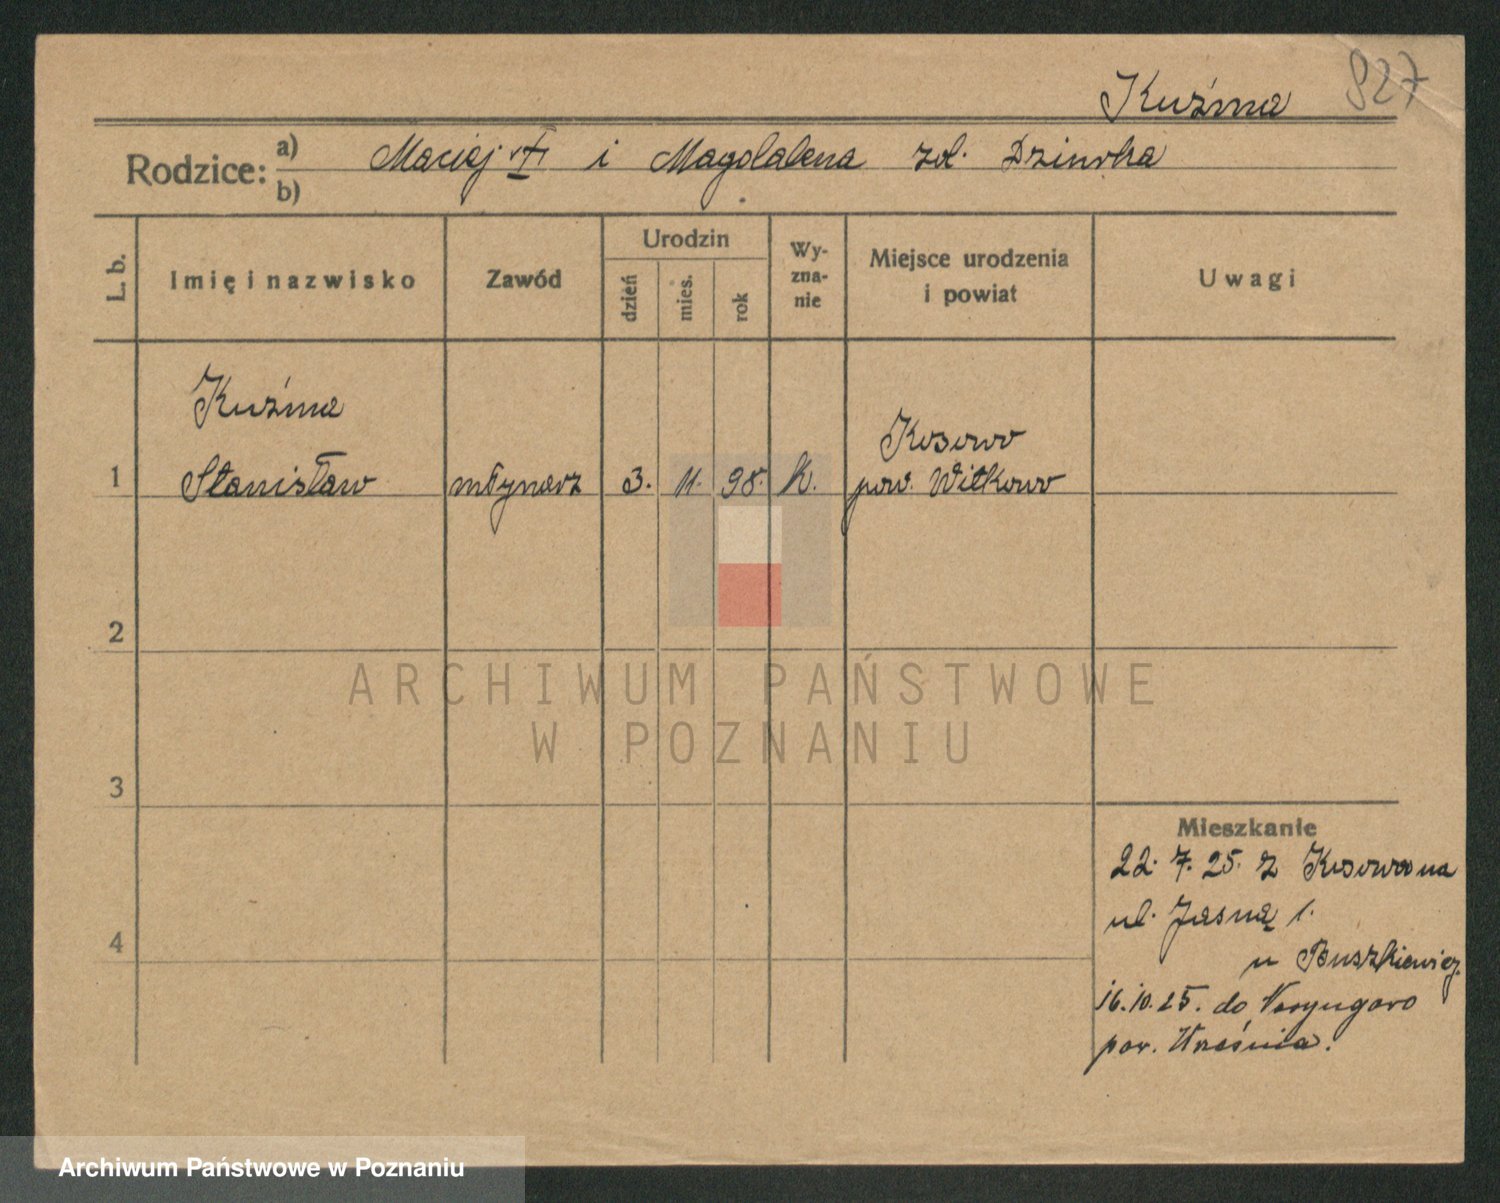 Kuźma 927
Rodzice: a) b) Maciej i Magdalena zd. Dzińska
L. b. Imię i nazwisko Zawód Urodzin dzień mies. rok Wy-zna-nie Miejsce urodzenia i powiat Uwagi
Kuźma
1 Stanisław młynarz 3. 11. 98. K. Kosowo
pow. Witkowo
2
ARCHIWUM PAŃSTWOWE
W POZNANIU
3
Mieszkanie
22. 7. 25. z Kosowo na
ul. Jasną 1.
4
u
16.10.25. do
pow. Września.
Archiwum Państwowe w Poznaniu